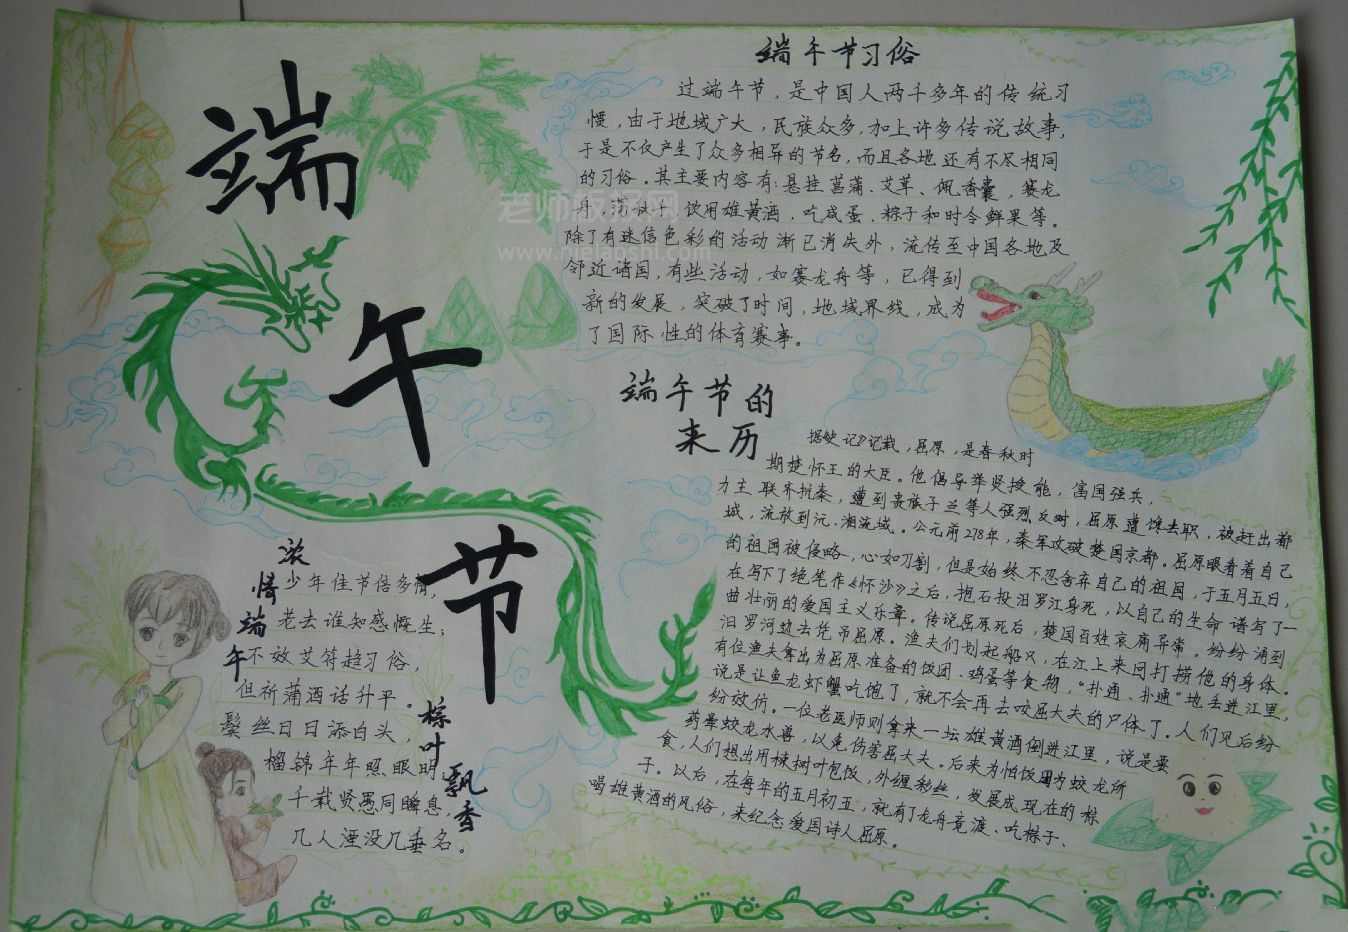 端午节
端午节习俗
过端午节，是中国人两千多年的传统习
惯，由于地域广大，民族众多，加上许多传说故事，
于是不仅产生了众多相异的节名，而且各地还有不尽相同
的习俗。其主要内容有：悬挂菖蒲、艾草、佩香囊，赛龙
舟，荡秋千，饮用雄黄酒，吃咸蛋、粽子和时令鲜果等。
除了有迷信色彩的活动渐已消失外，流传至中国各地及
邻近诸国，有些活动，如赛龙舟等，已得到
新的发展，突破了时间，地域界线，成为
了国际性的体育赛事。
老师板报网
www.nielaoshi.com
端午节的
来历
据《史记》记载，屈原，是春秋时
期楚怀王的大臣。他倡导举贤授能，富国强兵，
力主联齐抗秦，遭到贵族子兰等人强烈反对，屈原遭馋去职，被赶出都
城，流放到沅、湘流域。公元前278年，秦军攻破楚国京都。屈原眼看着自己
的祖国被侵略，心如刀割，但是始终不忍舍弃自己的祖国，于五月五日，
在写下了绝笔作《怀沙》之后，抱石投汨罗江身死，以自己的生命谱写了一
曲壮丽的爱国主义乐章。传说屈原死后，楚国百姓哀痛异常。纷纷涌到
汨罗河边去凭吊屈原。渔夫们划起船只，在江上来回打捞他的身体。
有位渔夫拿出为屈原准备的饭团、鸡蛋等食物，“扑通、扑通”地丢进江里，
说是让鱼龙虾蟹吃饱了，就不会再去咬屈大夫的尸体了。人们见后纷
纷效仿。一位老医师则拿来一坛雄黄酒倒进江里，说是要
药晕蛟龙水兽，以免伤害屈大夫。后来为怕饭团为蛟龙所
食，人们想出用楝树叶包饭，外缠彩丝，发展成现在的棕
子。以后，在每年的五月初五，就有了龙舟竞渡、吃粽子、
喝雄黄酒的风俗，来纪念爱国诗人屈原。
浓情端午
少年佳节倍多情，
老去谁知感慨生；
不效艾符趋习俗，
但祈蒲酒话升平。
鬓丝日日添白头，
榴锦年年照眼明
千载贤愚同瞬息，
几人湮没几垂名。
棕叶飘香